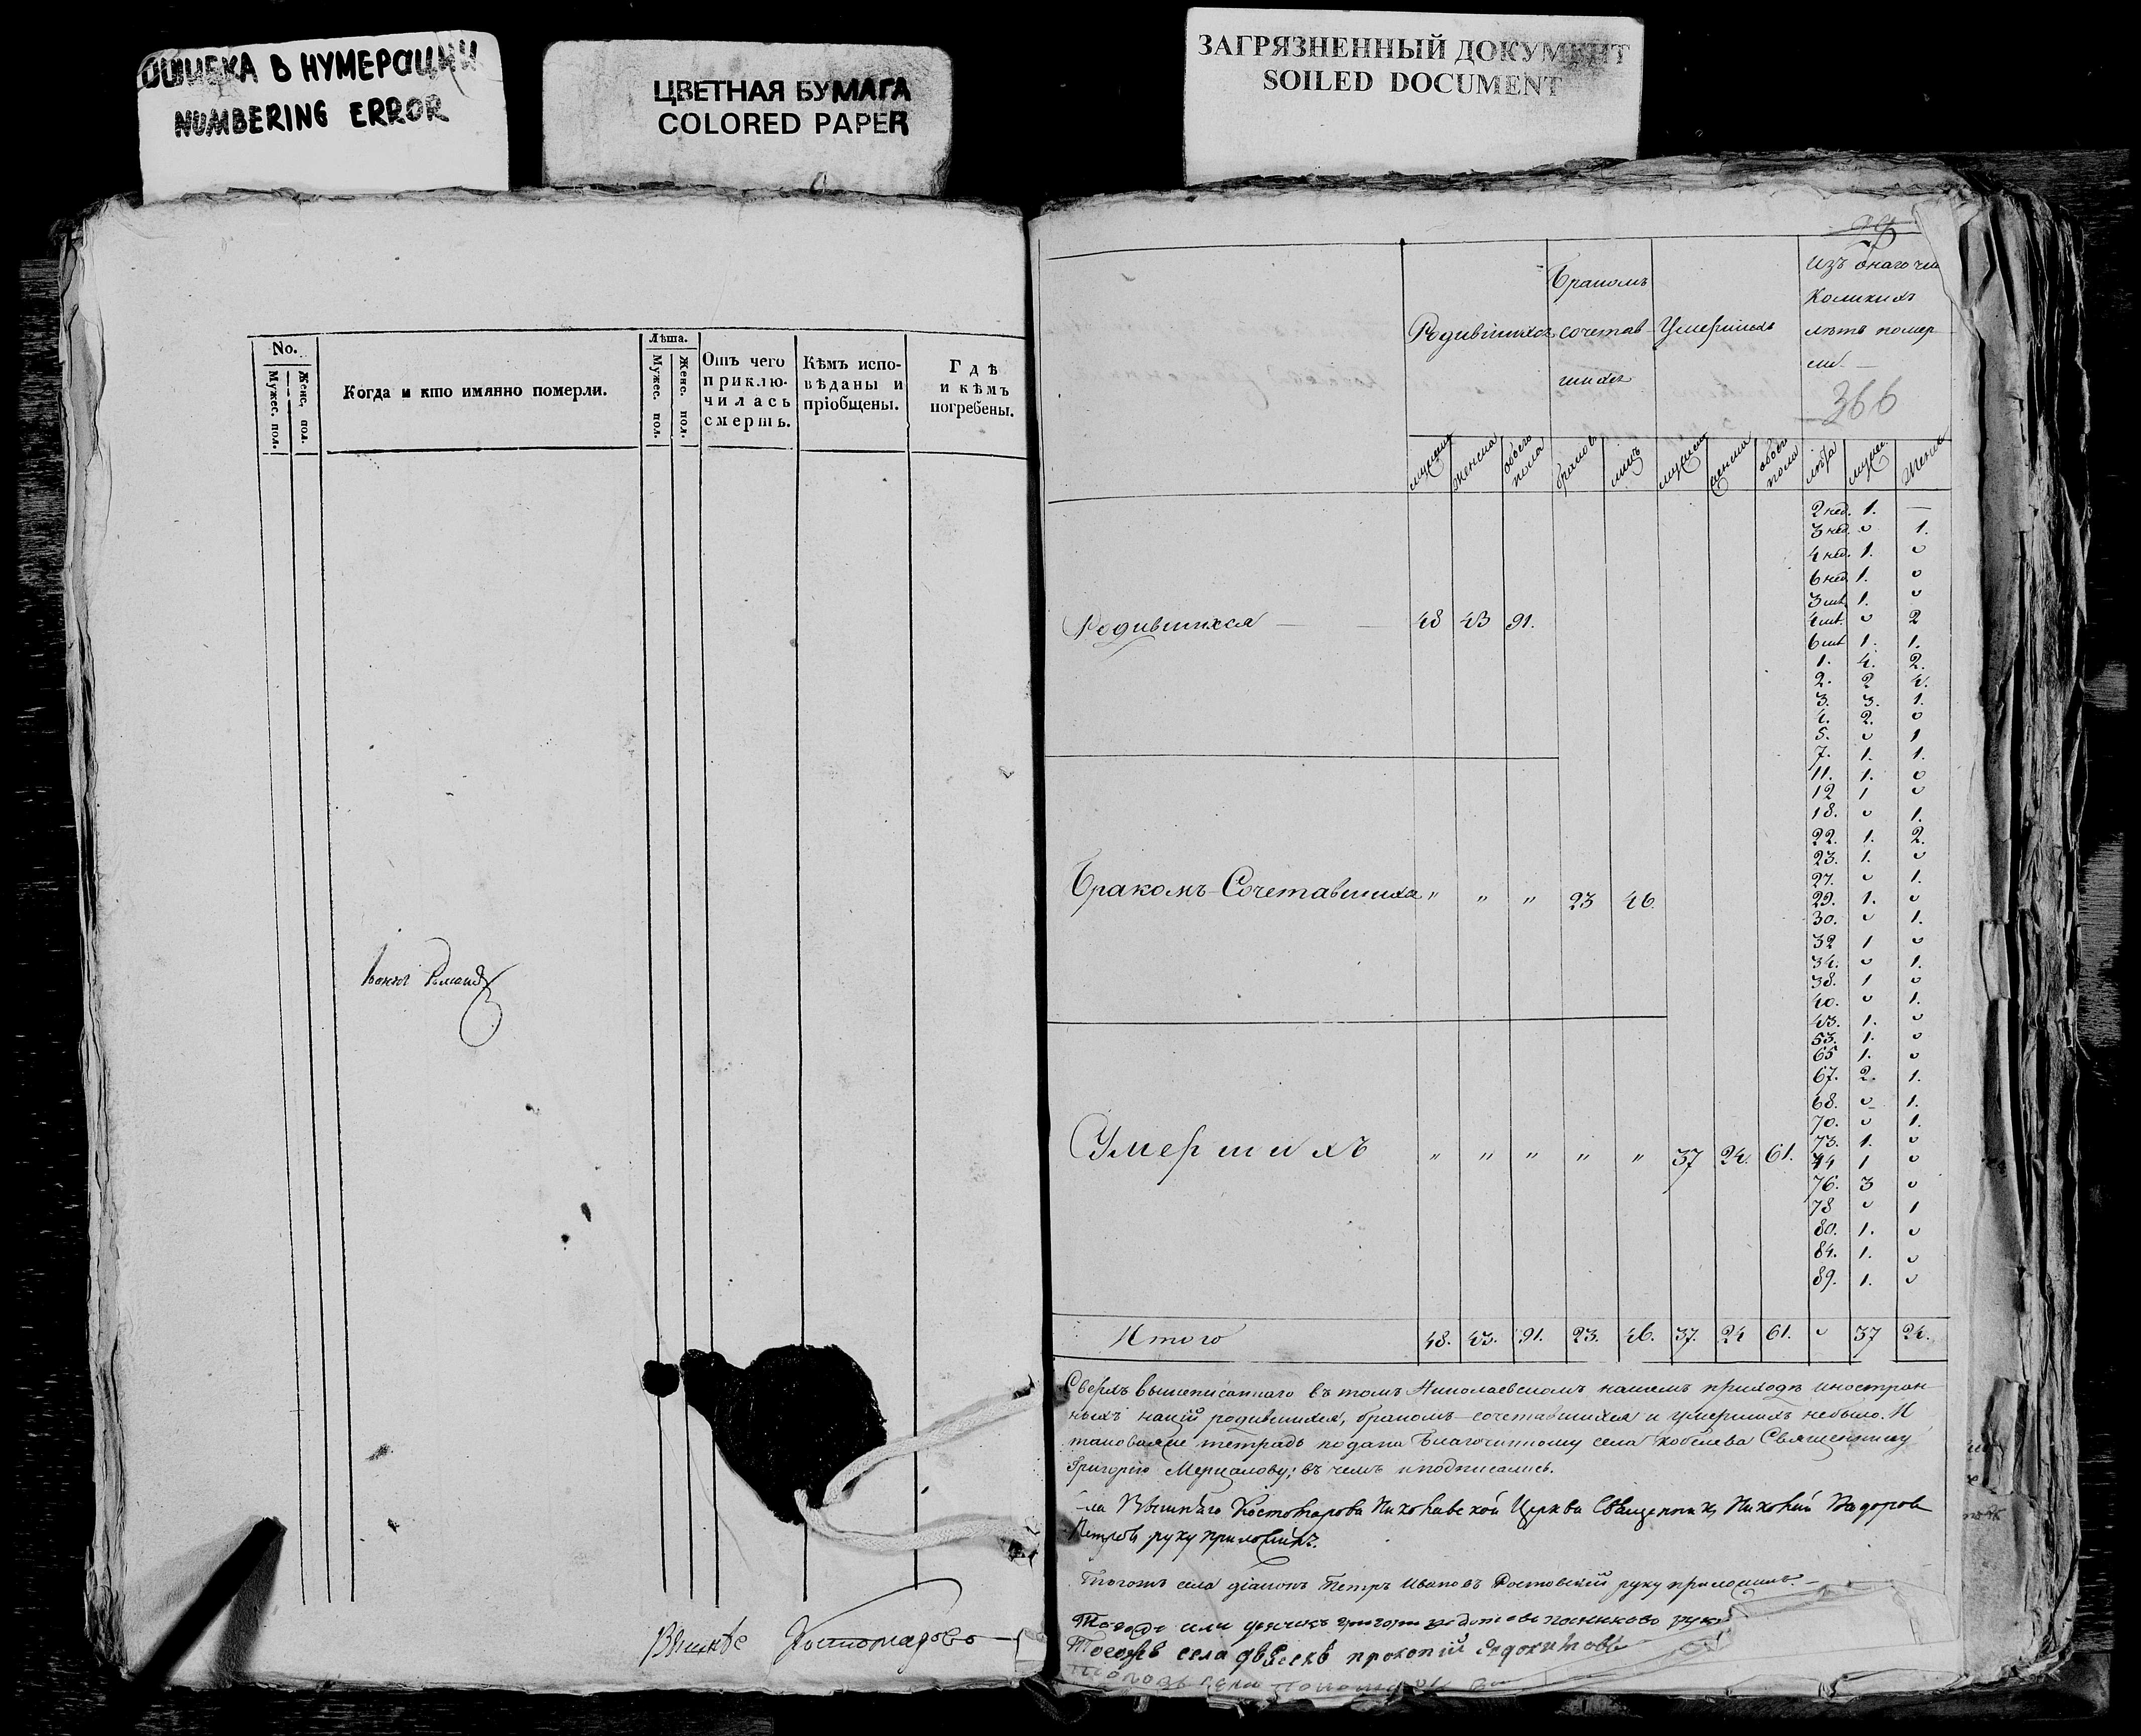 ОШИБКА В НУМЕРАЦИИ
NUMBERING ERROR
ЦВЕТНАЯ БУМАГА
COLORED PAPER
ЗАГРЯЗНЕННЫЙ ДОКУМЕНТ
SOILED DOCUMENT
No.
Мужес. пол.
Женс. пол.
Когда и кто имянно померли.
Лѣта.
Мужес. пол.
Женс. пол.
Отъ чего
приклю-
чилась
смерть.
Кѣмъ испо-
вѣданы и
пріобщены.
Гдѣ
и кѣмъ
погребены.
Родившихся
Бракомъ
сочетав
шихся
Умершихъ
Изъ онаго чи
Коликихъ
лѣтъ помер
ли.
366
мужеска женска обоего пола браковъ лицъ мужеска женска обоего пола лѣта мужес. женск
2 нед. 1. —
3 нед. 0 1.
4 нед. 1. 0
6 нед. 1. 0
3 мѣ. 1. 0
4 мѣ. 0 2
6 мѣ. 1. 1.
1. 4. 2.
2. 2 4.
3. 3. 1.
4. 2. 0
5. 0 1
7. 1. 1.
11. 1. 0
12 1 0
18. 0 1.
22. 1. 2.
23. 1. 0
27. 0 1.
29. 1. 0
30. 0 1.
32 1 0
34. 0 1.
38. 1 0
40. 0 1.
43. 1. 0
53. 1. 0
65 1. 0
67. 2. 1.
68. 0 1.
70. 0 1.
73. 1. 0
74 1 0
76. 3 0
78 0 1
80. 1. 0
84. 1. 0
89. 1. 0
Родившихся — — 48 43 91.
Бракомъ Сочетавшихся " " " 23 46.
Умершихъ " " " " " 37 24. 61.
Итого 48. 43. 91. 23. 46. 37. 24 61. 0 37 24.
Сверхъ вышеписаннаго въ томъ Николаевскомъ нашемъ приходѣ иностран
ныхъ націй родившихся, бракомъ сочетавшихся и умершихъ небыло. И
таковаяже тетрадь подана Благочинному села Кобелева Священнику
Григорію Мерцалову; въ чемъ и подписались.
Церкви Священникъ
Петровъ руку приложилъ.
Тогожъ села діаконъ Петръ Ивановъ Ростовскій руку приложилъ.
Тогожъ села дьячекъ
Тогожъ села прокопій Евдокимовъ